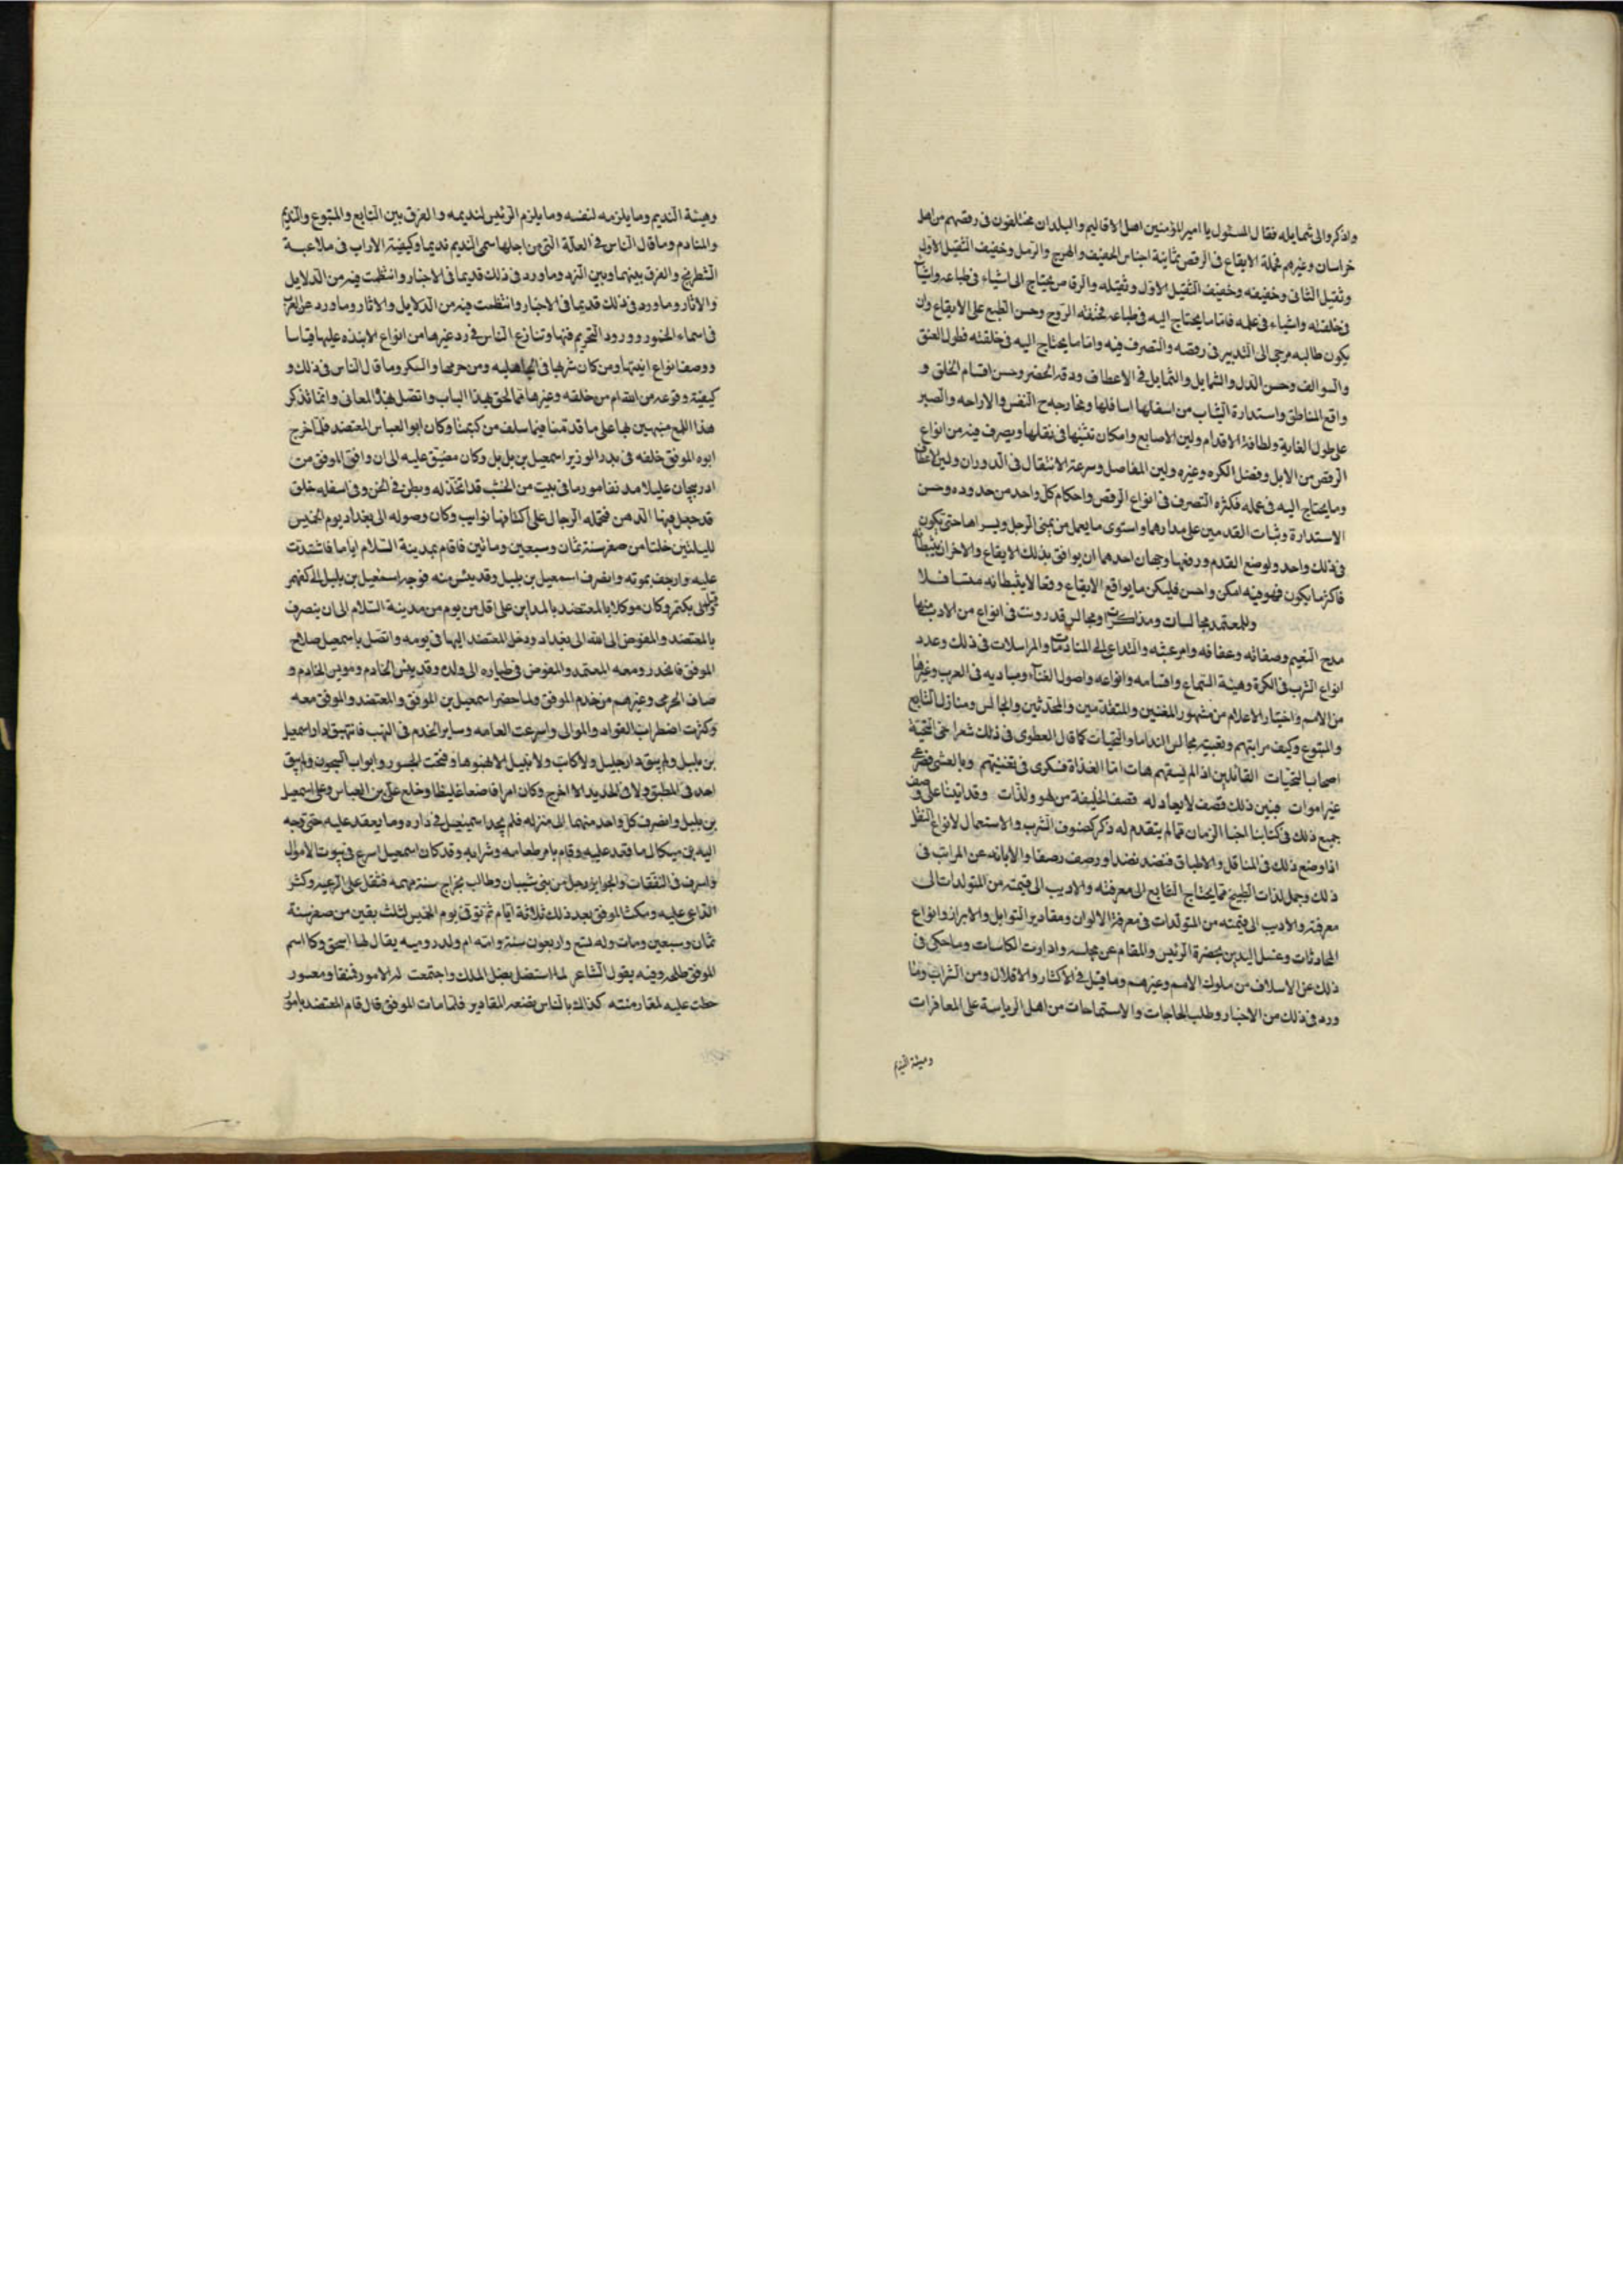 واذكروا الى شمايله فقال المسئول يا امير المؤمنين اهل الاقاليم والبلدان مختلفون فى رقصهم من اهل
خراسان وغيرهم فجملة الايقاع فى الرقص ثمانية اجناس الخفيف والهزج والرمل وخفيف الثقيل الاول
وثقيل الثانى وخفيفه وخفيف الثقيل الاول وثقيله والرقاص يحتاج الى اشياء فى طباعه واشيآ
فى خلقته واشياء فى عمله فاما ما يحتاج اليه فى طباعه فخفته الروح وحسن الطبع على الايقاع وان
يكون طالبه مرحى الى التدبير فى رقصه والتصرف فيه واما ما يحتاج اليه فى خلقته فطول العنق
والسوالف وحسن الدل والشمايل والتمايل فى الاعطاف ودقه الخصر وحسن اقسام الخلق و
واقع المناطق واستدارة الثياب من اسفلها اسافلها ومخارجه ح النفس والاراحه والصبر
على طول الغاية ولطافة الاقدام ولين الاصابع وامكان تثنيها فى نقلها ويصرف فيه من انواع
الرقص من الابل وفضل الكره وغيره ولين المفاصل وسرعة الانتقال فى الدوران ولين الاعطاف
وما يحتاج اليه فى عمله فكثره التصرف فى انواع الرقص واحكام كل واحد من حدوده وحسن
الاستدارة وثبات القدمين على مدارها واستوى ما يعمل من يمنى الرجل ويسراها حتى تكون
فى ذلك واحد ولوضع القدم ورفعها وجهان احدهما ان يوافق بذلك الايقاع والاخر ان يثبطا
فاكثر ما يكون فهو فيه امكن واحسن فليكن ما يواقع الايقاع وقعا لا يثبطانه متسافلا
وللمعتمد مجالسات ومذاكرات ومجالس قد رونت فى انواع من الادب منها
مدح النعيم وصفاته وعفافه وامر عبثه والتداعى الى المنادمات والمراسلات فى ذلك وعدد
انواع الشرب فى الكرة وهيئة السماع واقسامه وانواعه واصول الغنآء ومباديه فى العرب وغيرها
من الامم واخبار الاعلام من مشهور المغنين والمتقدمين والمحدثين والمجالس ومنازل التابع
والمتبوع وكيف مرابتهم وتعبيته مجالس الندما والتحيات كما قال العطوى فى ذلك شعر احى التحية
اصحاب التحيات القائلين اذا لم يسقهم هات اما الغداة فسكرى فى تغنيتهم وبالعشى فصرعى
غير اموات فبين ذلك قصف لا يعادله قصف الخليفة من لهو ولذات وقد اتينا على وصف
جميع ذلك فى كتابنا اخبار الزمان مما لم يتقدم له ذكر كصنوف الشرب والاستعمال لانواع النقل
اذا وضع ذلك فى المناقل والاطباق فنضد نضدا ورصف رصفا والابانه عن المراتب فى
ذلك وجمل لذات الطبيخ مما يحتاج التابع الى معرفته والاديب الى فهمته من المتولدات الى
معرفته والاديب الى فهمته من المتولدات فى معرفة الالوان ومقادير التوابل والابراز وانواع
المحادثات وغسل اليدين بحضرة الرئيس والمقام عن مجلسه وادارت الكاسات وما حكى فى
ذلك عن الاسلاف من ملوك الامم وغيرهم وما قيل فى الاكثار والاقلال ومن الشراب وما
ورد فى ذلك من الاخبار وطلب الحاجات والاستماحات من اهل الرياسة على المعاقرات
وهيئة النديم
وهيئة النديم وما يلزمه لنفسه وما يلزم الرئيس لنديمه والفرق بين التابع والمتبوع والنديم
والمنادم وما قال الناس فى العلة التى من اجلها سمى النديم نديما وكيفية الاراب فى ملاعبة
الشطرنج والفرق بينهما وبين النرد وما ورد فى ذلك قديما فى الاخبار وانتظمت فيه من الدلايل
والاثار وما ورد فى ذلك قديما فى الاخبار وانتظمت فيه من الدلايل والاثار وما ورد عن العرب
فى اسماء الخمور وورود التحريم فيها وتنازع الناس فى رد غيرها من انواع الانبذه عليها قياسا
ووصف انواع انيتها ومن كان شربها فى الجاهليه ومن حرمها والسكر وما قال الناس فى ذلك و
كيفية وقوعه من الله ام من خلقه وغيرها مما لحق بهذا الباب واتصل بهذا المعانى وانما نذكر
هذا اللمع منبهين بها على ما قدمنا فيما سلف من كتبنا وكان ابو العباس المعتضد فلما خرج
ابوه الموفق خلفه فى يد الوزير اسمعيل بن بل بل وكان مضيق عليه الى ان وافق الموفق من
ادربيجان عليلا مدنفا مورما فى بيت من الخشب قد اتخذ له وبطن فى الخز وفى اسفله حلق
قد جعل فيها الدهن فحمله الرجال على اكتافها نوايب وكان وصوله الى بغداد يوم الخميس
لليلتين خلتا من صفر سنة ثمان وسبعين ومائين فاقام بمدينة السلام اياما فاشتدت
عليه وارجف بموته وانصرف اسمعيل بن بلبل وقد يئس منه فوجه اسمعيل بن بلبل الى كفهمر
وقيل بكتمر وكان موكلا بالمعتضد بالمداين على اقل من يوم من مدينة السلام الى ان ينصرف
بالمعتضد والمفوض الى الله الى بغداد ودخل المعتضد اليها فى يومه واتصل باسمعيل صلاح
الموفق فانحدر ومعه المعتمد والمفوض فى طياره الى ولده وقد يئس الخادم ومويس الخادم و
صاف الحرمى وغيرهم من خدم الموفق ولما حضر اسمعيل بن الموفق والمعتضد والموفق معه
وكثرت اضطراب القواد والموالى واسرعت العامه وساير الخدم فى النهب فانتهبوا دار اسمعيل
بن بلبل ولم يبق دار جليل ولا كاتب ولا نبيل الا نهبوها وفتحت الجسور وابواب السجون ولم يبق
احد فى المطبق ولا فى الحديد الا اخرج وكان امرا فضعا غليظا وخلع على بن العباس وعلى اسمعيل
بن بلبل وانصرف كل واحد منهما الى منزله فلم يجد اسمعيل فى داره وما يعقد عليه حتى وجه
اليه بن ميكال ما قعد عليه وقام بامر طعامه وشرابه وقد كان اسمعيل اسرع فى بيوت الاموال
واسرف فى النفقات والجوايز ورجل من بنى شيبان وطالب بخراج سنة مهمه فثقل على الرعيه وكثر
الداعى عليه ومكث الموفق بعد ذلك ثلاثة ايام ثم توفى يوم الخميس لثلث بقين من صفر سنة
ثمان وسبعين ومات وله تسع واربعون سنة وامه ام ولد روميه يقال لها اسحق وكا اسم
الموفق طلحه وفيه يقول الشاعر لما استضل بضل الملك واجتمعت له الامور فنقا ومعسور
حطت عليه لمقار منته كذالك بالناس يضنعه المقادير فلما مات الموفق قال قام المعتضد بامور